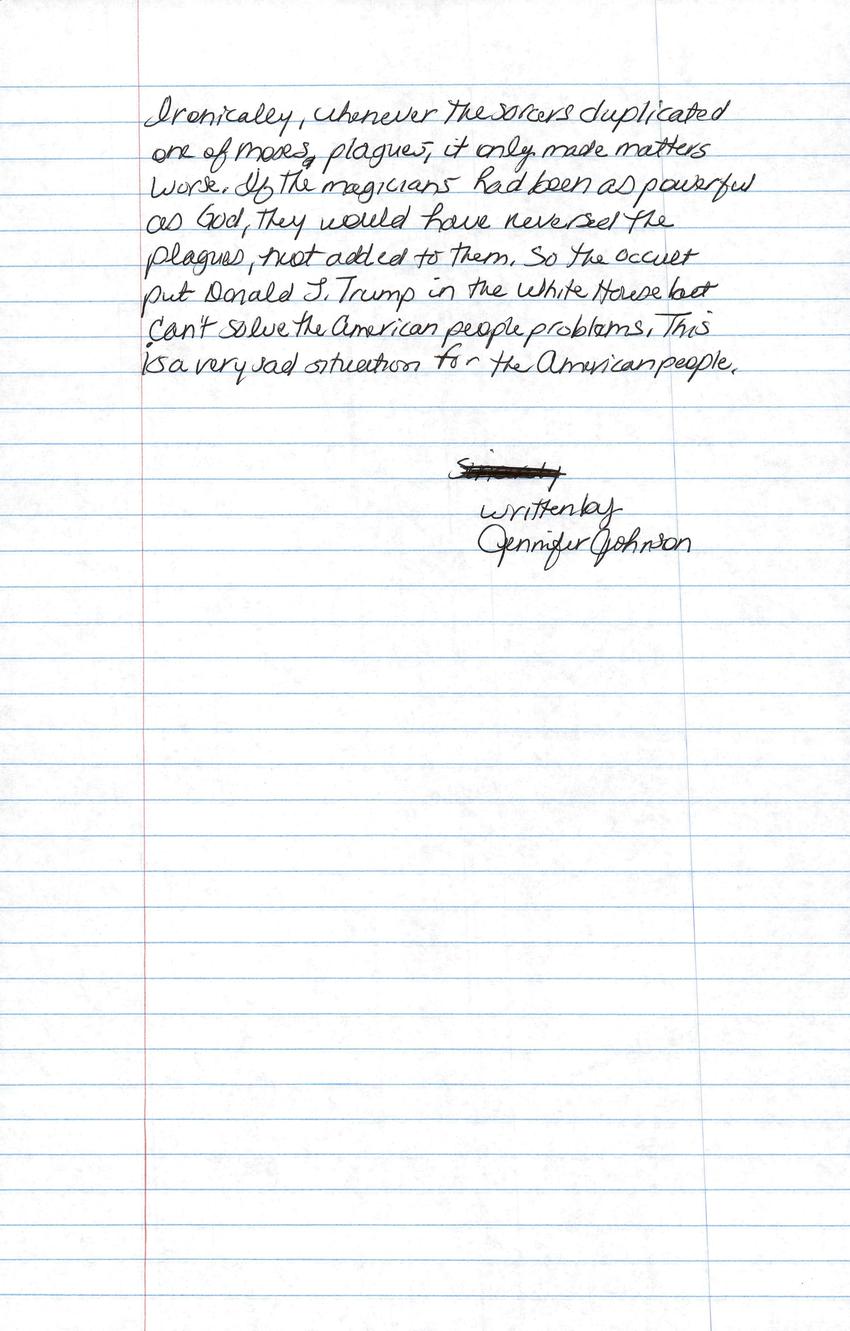 Ironicaley, whenever the sorcers duplicated
one of moses, plagues, it only made matters
worse. If the magicians had been as powerful
as God, they would have reversed the
plagues, not added to them. So the occult
put Donald J. Trump in the White House but
can't solve the American people problems. This
is a very sad situation for the American people.
written by
Jennifer Johnson